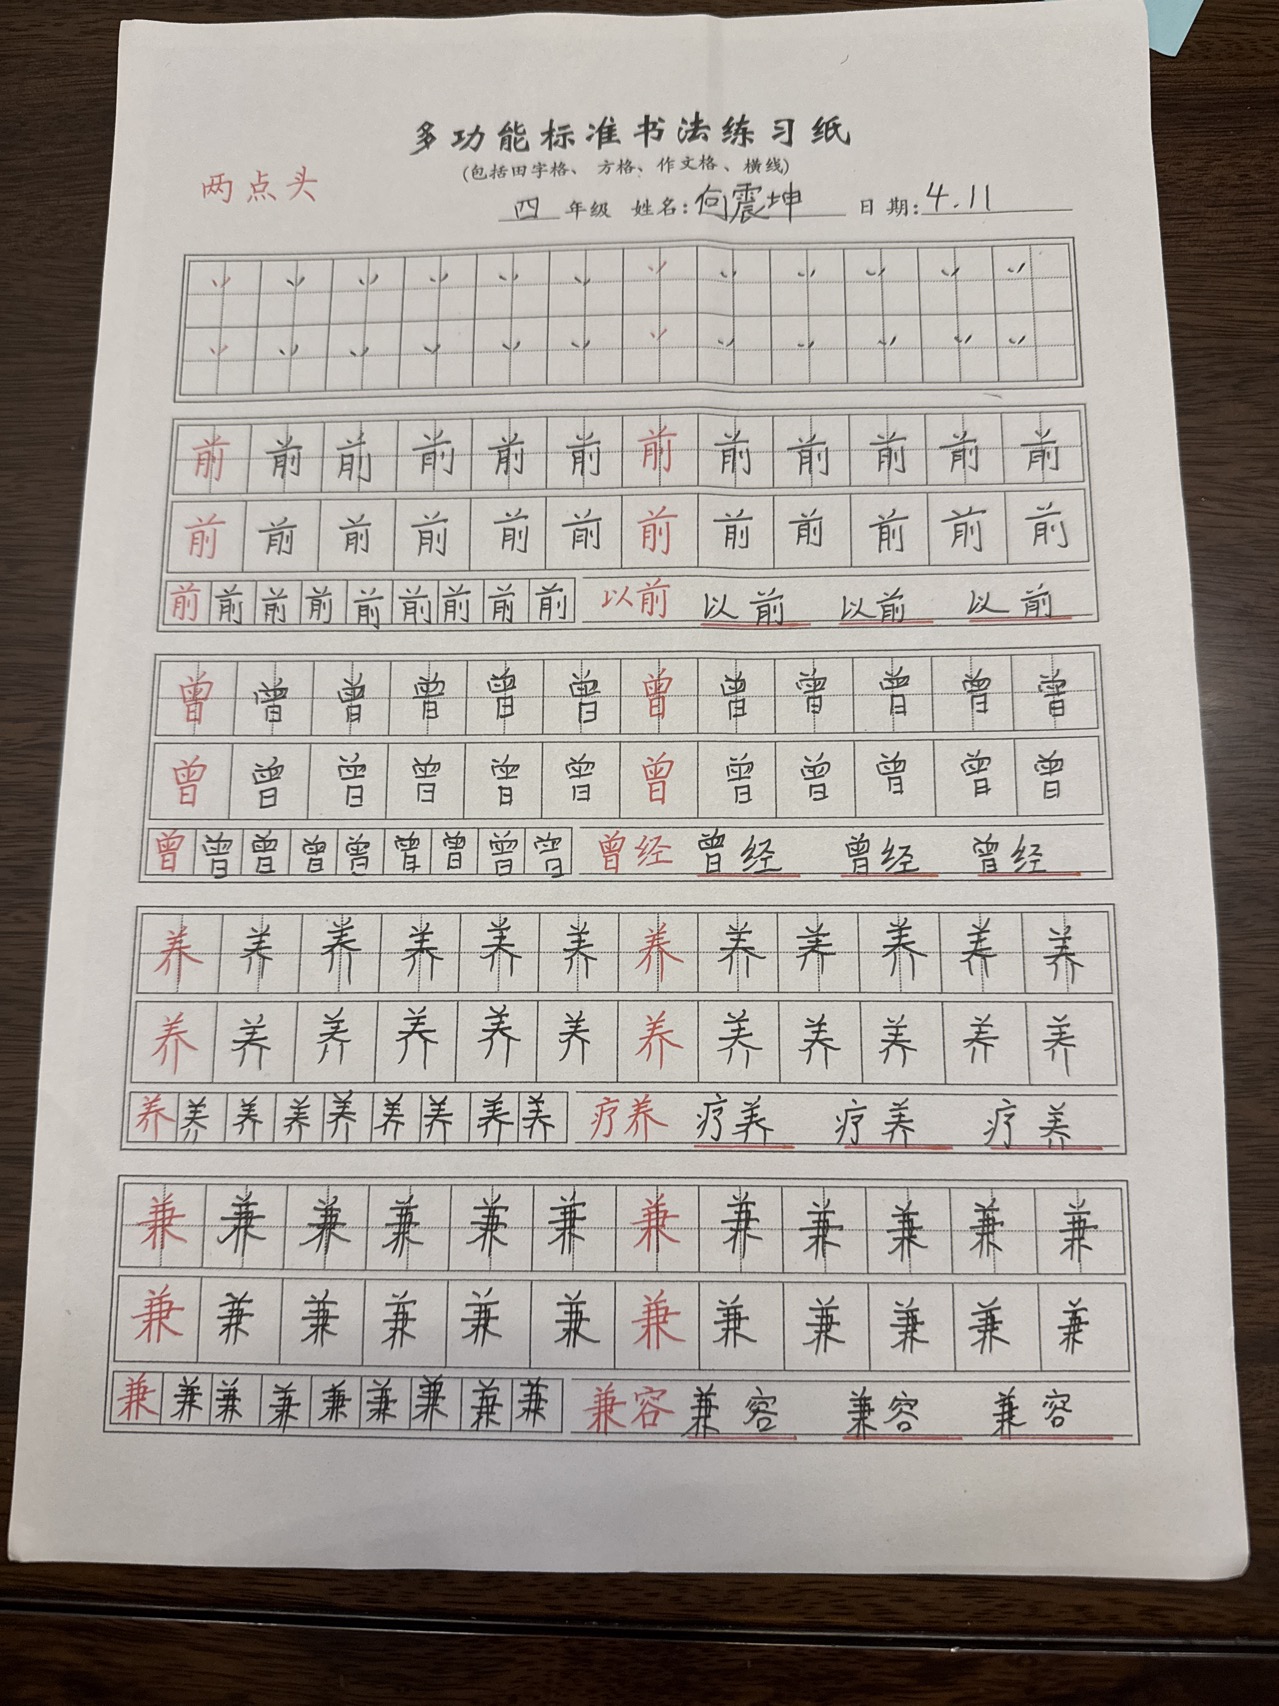 多功能标准书法练习纸
(包括田字格、方格、作文格、横线)
两点头
四 年级 姓名:向震坤 日期:4.11
丷 丷 丷 丷 丷 丷 丷 丷 丷 丷 丷 丷
丷 丷 丷 丷 丷 丷 丷 丷 丷 丷 丷 丷
前 前 前 前 前 前 前 前 前 前 前 前
前 前 前 前 前 前 前 前 前 前 前 前
前 前 前 前 前 前 前 前 前 以前 以前 以前 以前
曾 曾 曾 曾 曾 曾 曾 曾 曾 曾 曾 曾
曾 曾 曾 曾 曾 曾 曾 曾 曾 曾 曾 曾
曾 曾 曾 曾 曾 曾 曾 曾 曾 曾经 曾经 曾经 曾经
养 养 养 养 养 养 养 养 养 养 养 养
养 养 养 养 养 养 养 养 养 养 养 养
养 养 养 养 养 养 养 养 养 疗养 疗养 疗养 疗养
兼 兼 兼 兼 兼 兼 兼 兼 兼 兼 兼 兼
兼 兼 兼 兼 兼 兼 兼 兼 兼 兼 兼 兼
兼 兼 兼 兼 兼 兼 兼 兼 兼 兼容 兼容 兼容 兼容